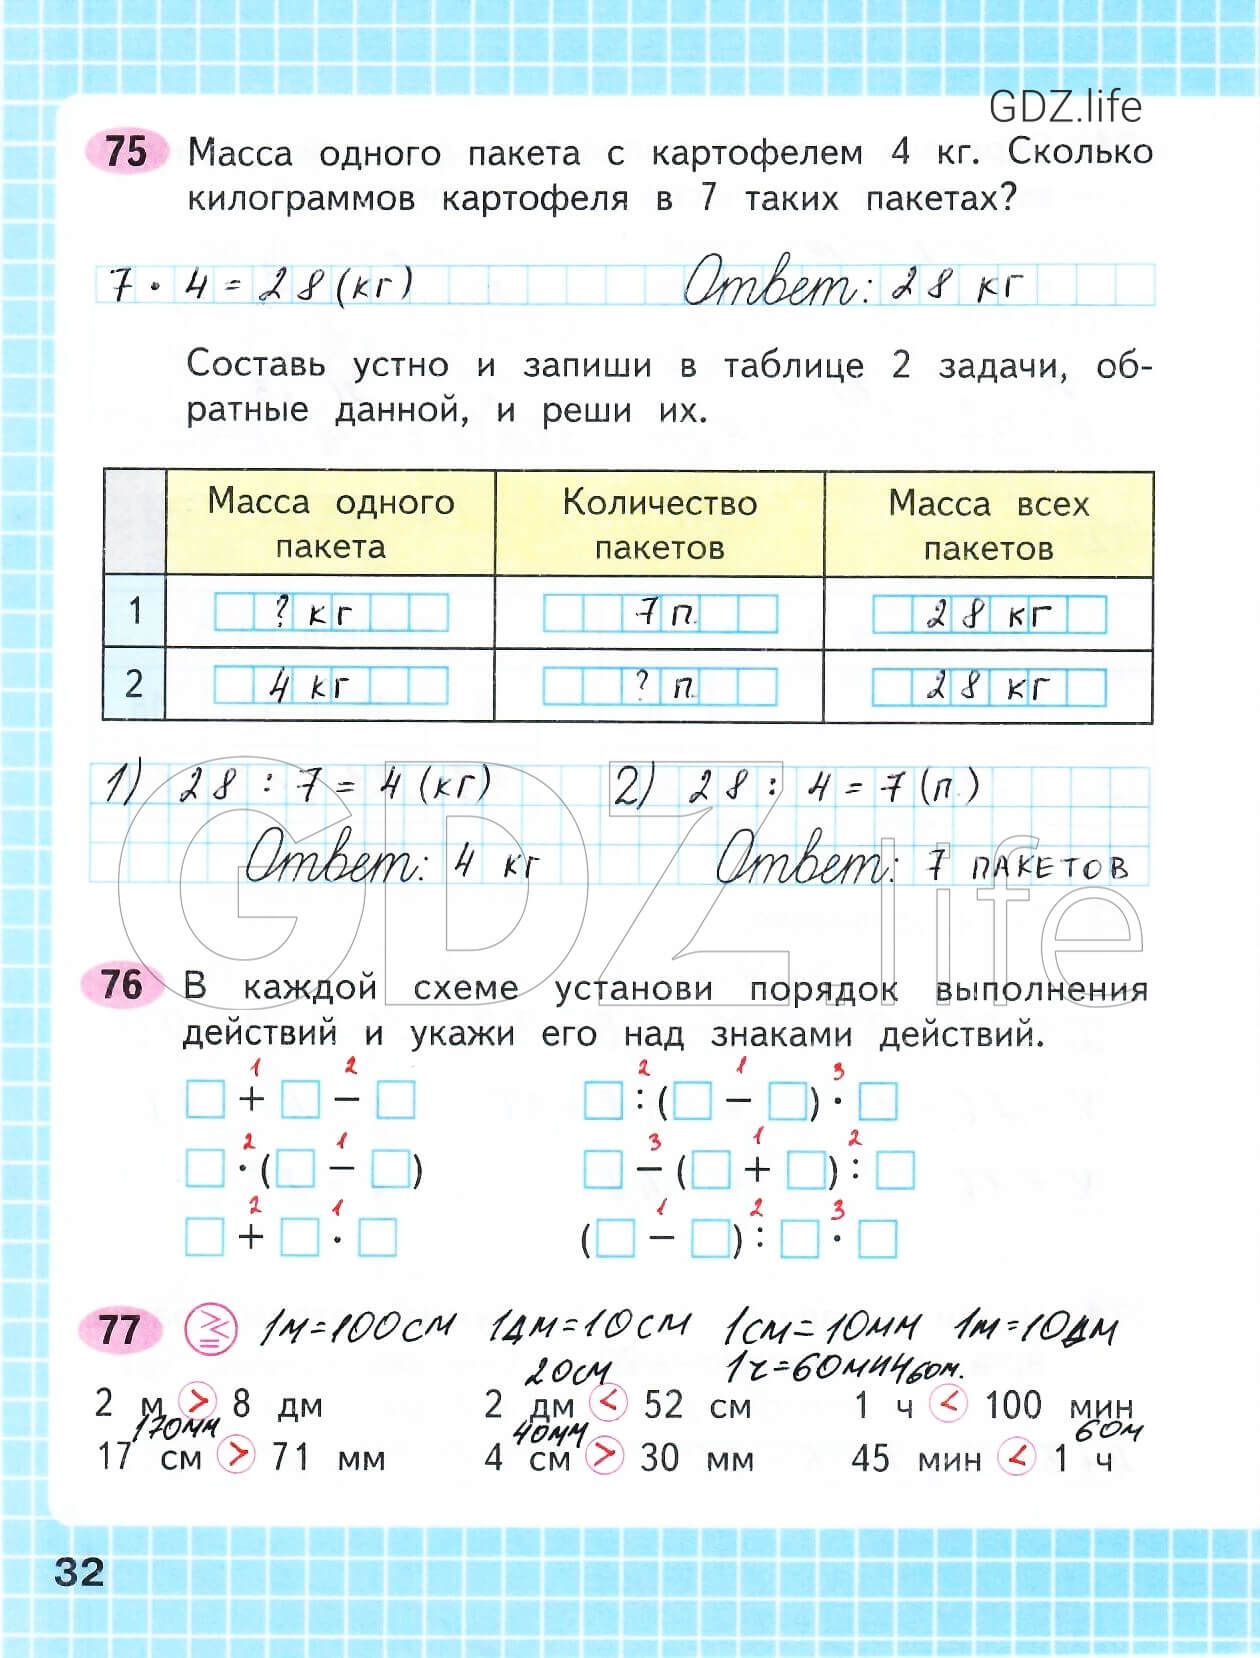 GDZ.life
75 Масса одного пакета с картофелем 4 кг. Сколько
килограммов картофеля в 7 таких пакетах?
7 · 4 = 28 (кг) Ответ: 28 кг
Составь устно и запиши в таблице 2 задачи, об-
ратные данной, и реши их.
Масса одного пакета Количество пакетов Масса всех пакетов
1 ? кг 7 п. 28 кг
2 4 кг ? п. 28 кг
1) 28 : 7 = 4 (кг) 2) 28 : 4 = 7 (п.)
Ответ: 4 кг Ответ: 7 пакетов
GDZ.life
76 В каждой схеме установи порядок выполнения
действий и укажи его над знаками действий.
1 2 2 1 3
□ + □ − □ □ : (□ − □) · □
2 1 3 1 2
□ · (□ − □) □ − (□ + □) : □
2 1 1 2 3
□ + □ · □ (□ − □) : □ · □
77 1м=100см 1дм=10см 1см=10мм 1м=10дм
20см 1ч=60мин 60м.
2 м > 8 дм 2 дм < 52 см 1 ч < 100 мин
170мм 40мм 60м
17 см > 71 мм 4 см > 30 мм 45 мин < 1 ч
32